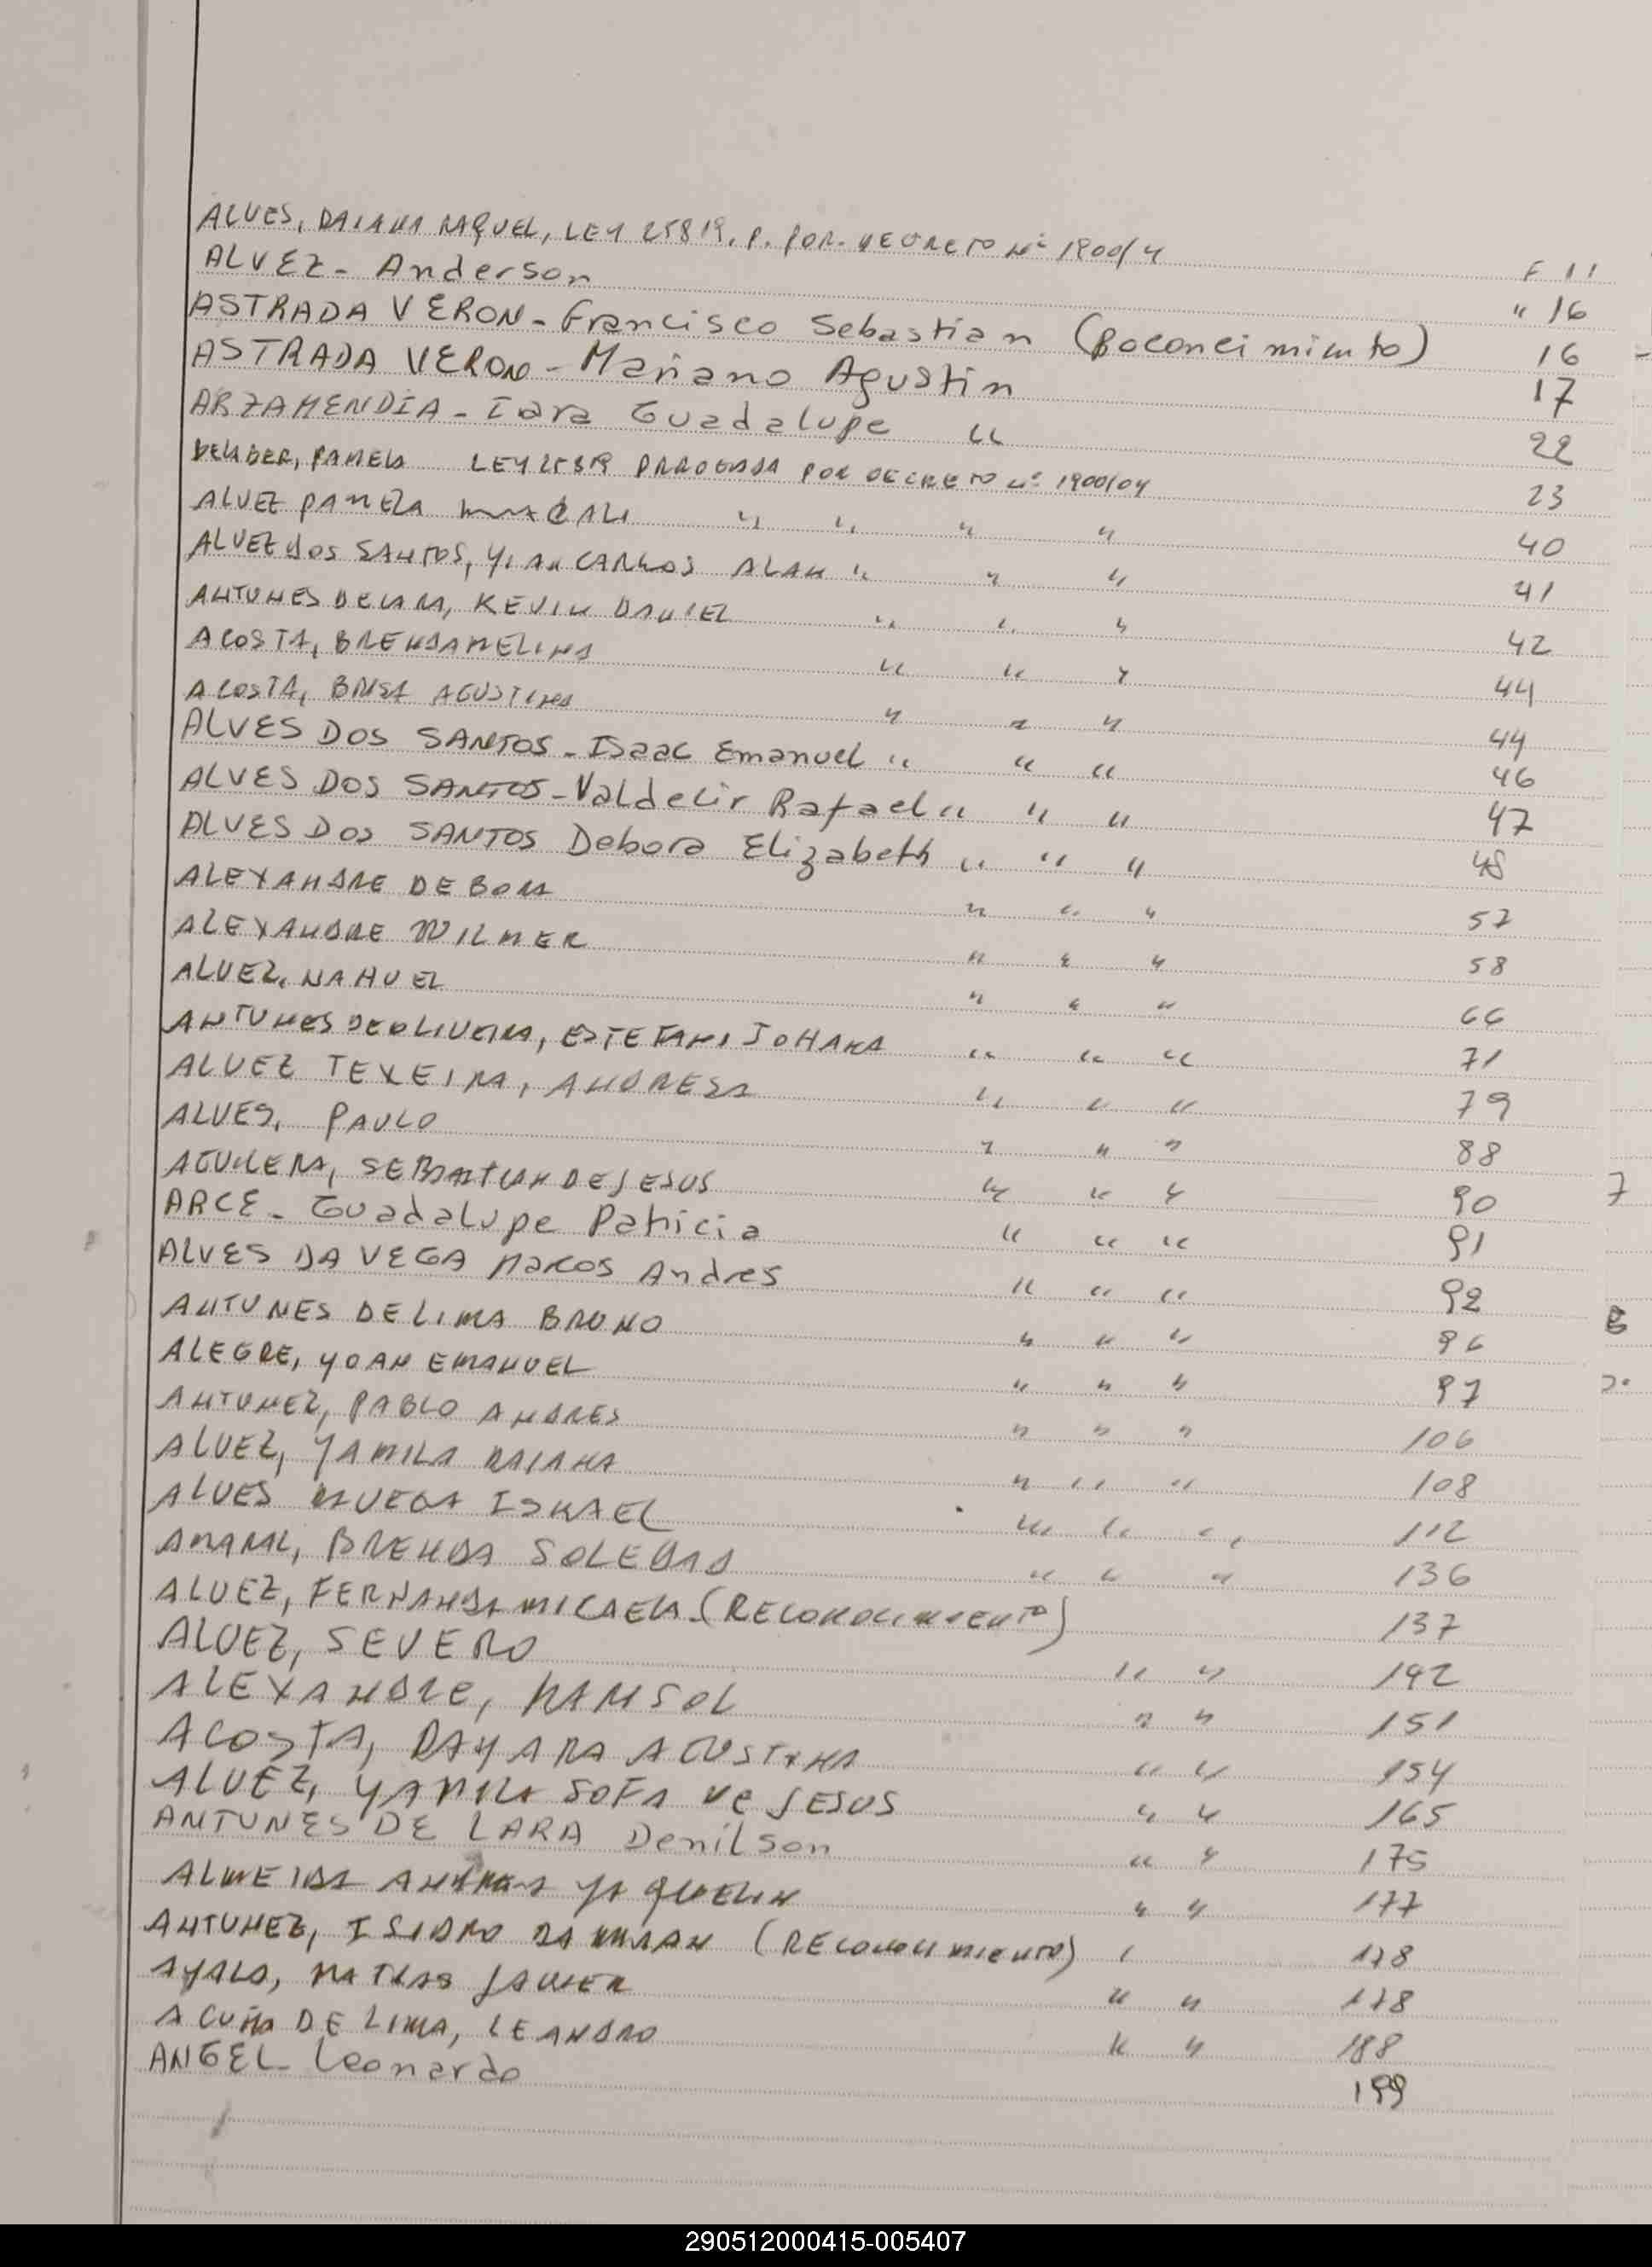 ALVES, DAIANA RAQUEL, LEY 25819, P. POR. DECRETO Nº 1900/4 F 11
ALVEZ - Anderson " 16
ASTRADA VERON - Francisco Sebastian (Roconcimiento) 16
ASTRADA VERON - Mariano Agustin 17
ARZAMENDIA - Iara Guadalupe " 22
PAMELA LEY 25819 PRROGADA POR DECRETO Nº 1900/04 23
ALVEZ PAMELA " " " " 40
ALVEZ DOS SANTOS, YIAN CARLOS ALAN " " " 41
ANTUNES DE LARA, KEVIN DANIEL " " " 42
ACOSTA, BRENDA MELINA " " " 44
ACOSTA, BRISA AGUSTINA " " " 44
ALVES DOS SANTOS - Isaac Emanuel " " " 46
ALVES DOS SANTOS - Valdecir Rafael " " " 47
ALVES DOS SANTOS Debora Elizabeth " " " 48
ALEXANDRE DEBORA " " " 57
ALEXANDRE WILMER " " " 58
ALVEZ, NAHUEL " " " 66
ANTUNES DE OLIVEIRA, ESTEFANI JOHANA " " " 71
ALVEZ TEXEIRA, ANDRESA " " " 79
ALVES, PAULO " " " 88
AGUILERA, SEBASTIAN DE JESUS " " " 90
ARCE - Guadalupe Patricia " " " 91
ALVES DA VEGA Marcos Andres " " " 92
ANTUNES DE LIMA BRUNO " " " 96
ALEGRE, YOAN EMANUEL " " " 97
ANTUNEZ, PABLO ANDRES " " " 106
ALVEZ, YAMILA DAIANA " " " 108
ALVES DA VEGA ISRAEL " " " 112
AMARAL, BRENDA SOLEDAD " " " 136
ALVEZ, FERNANDA MICAELA (RECONOCIMIENTO) 137
ALVEZ, SEVERO " " 142
ALEXANDRE, MARISOL " " 151
ACOSTA, DAYARA AGUSTINA " " 154
ALVEZ, YAMILA SOFA DE JESUS " " 165
ANTUNES DE LARA Denilson " " 175
ALMEIDA YAQUELIN " " 177
ANTUNEZ, ISIDRO DAMIAN (RECONOCIMIENTO) " 178
AYALA, MATIAS JAVIER " " 178
ACUÑA DE LIMA, LEANDRO " " 188
ANGEL - Leonardo 199
290512000415-005407